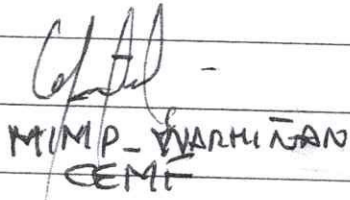 MIMP_WARMIÑAN
CEMF